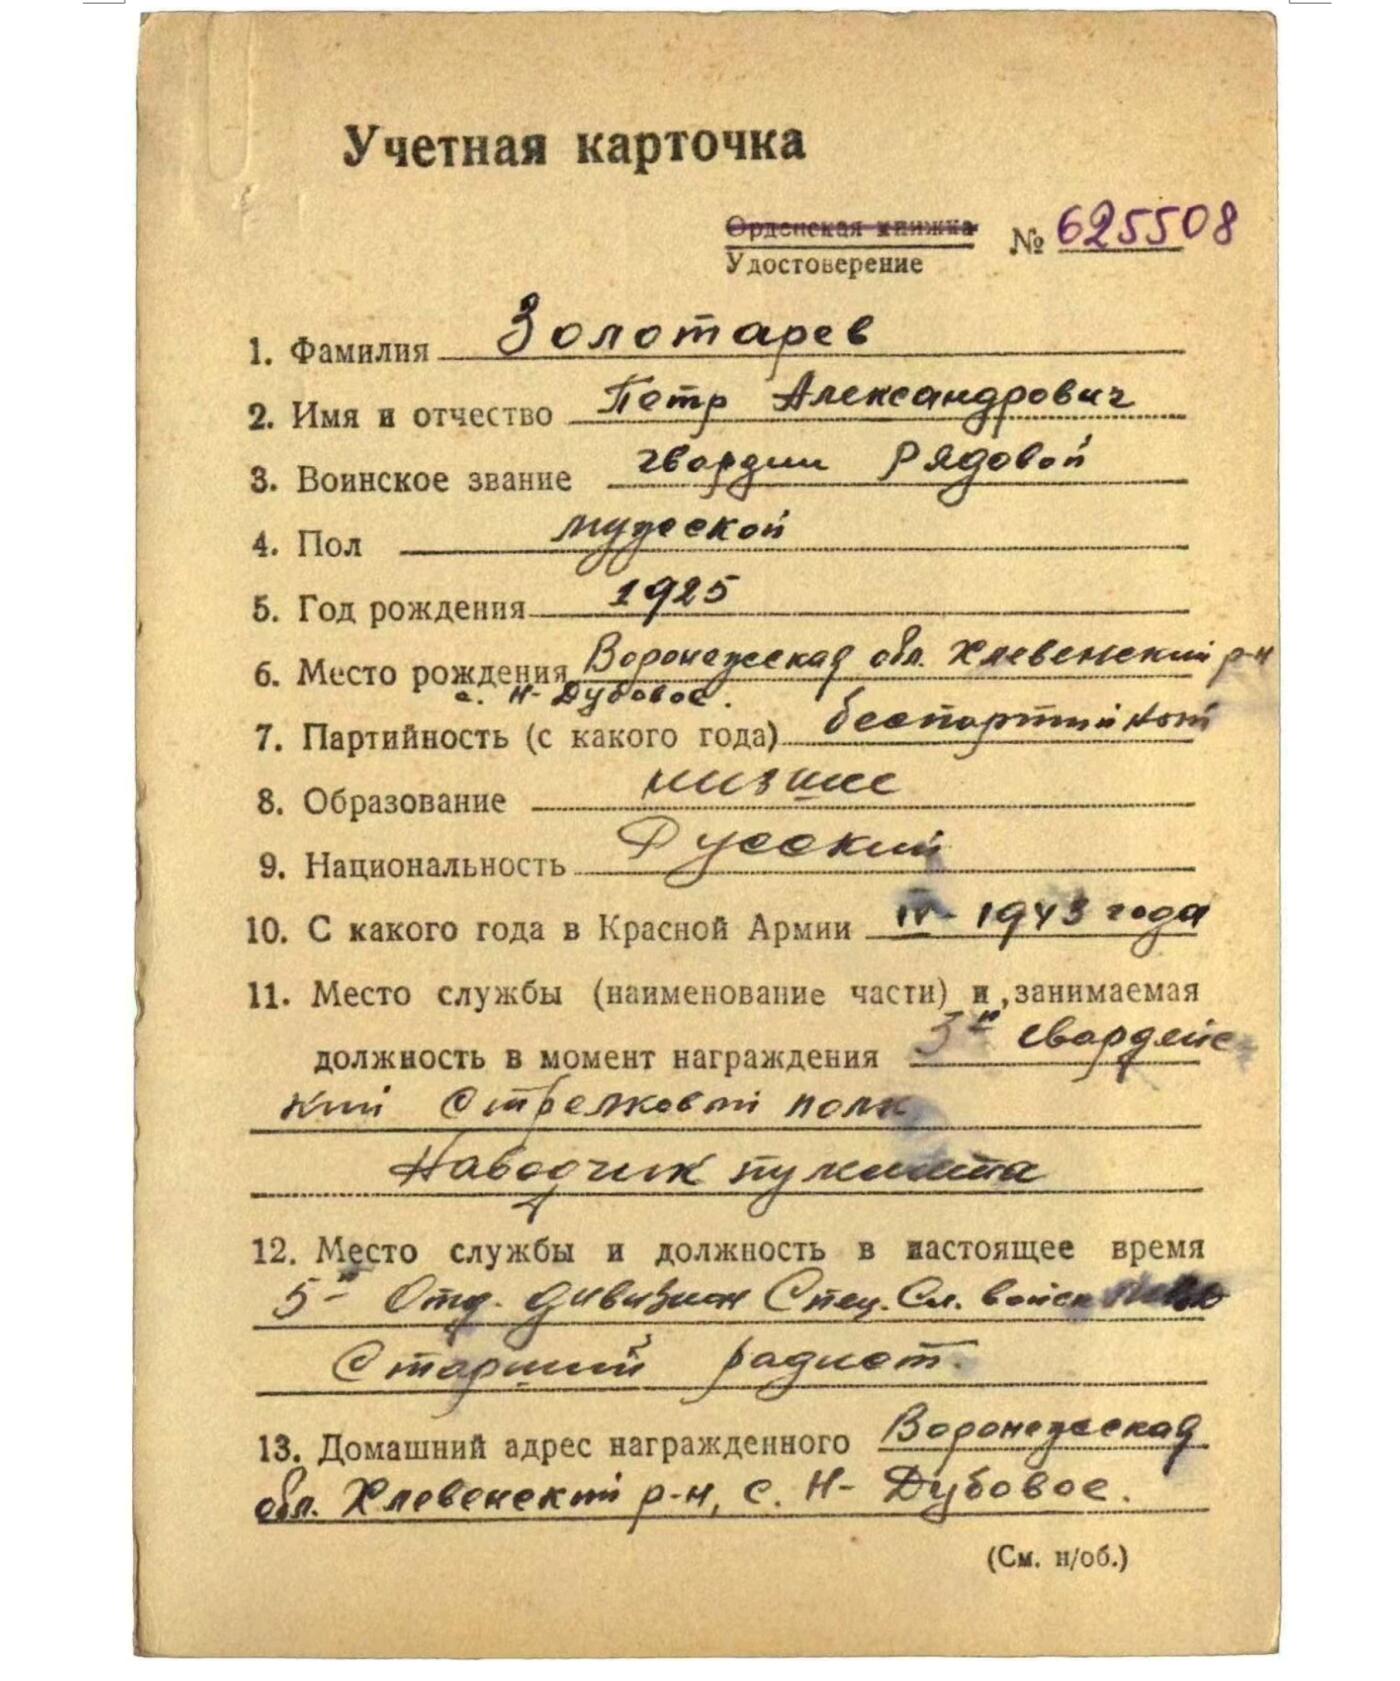 Учетная карточка
Орденская книжка
Удостоверение № 625508
1. Фамилия Золотарев
2. Имя и отчество Петр Александрович
3. Воинское звание гвардии Рядовой
4. Пол мужской
5. Год рождения 1925
6. Место рождения Воронежская обл. Хлевенский р-н
с. Н-Дубовое.
7. Партийность (с какого года) беспартийный
8. Образование низшее
9. Национальность Русский
10. С какого года в Красной Армии IV-1943 года
11. Место службы (наименование части) и занимаемая
должность в момент награждения 3й гвардейс-
кий Стрелковый полк
Наводчик пулемета
12. Место службы и должность в настоящее время
5й Отд. дивизион Спец. Сл. войск
Старший радист.
13. Домашний адрес награжденного Воронежская
обл. Хлевенский р-н, с. Н-Дубовое.
(См. н/об.)